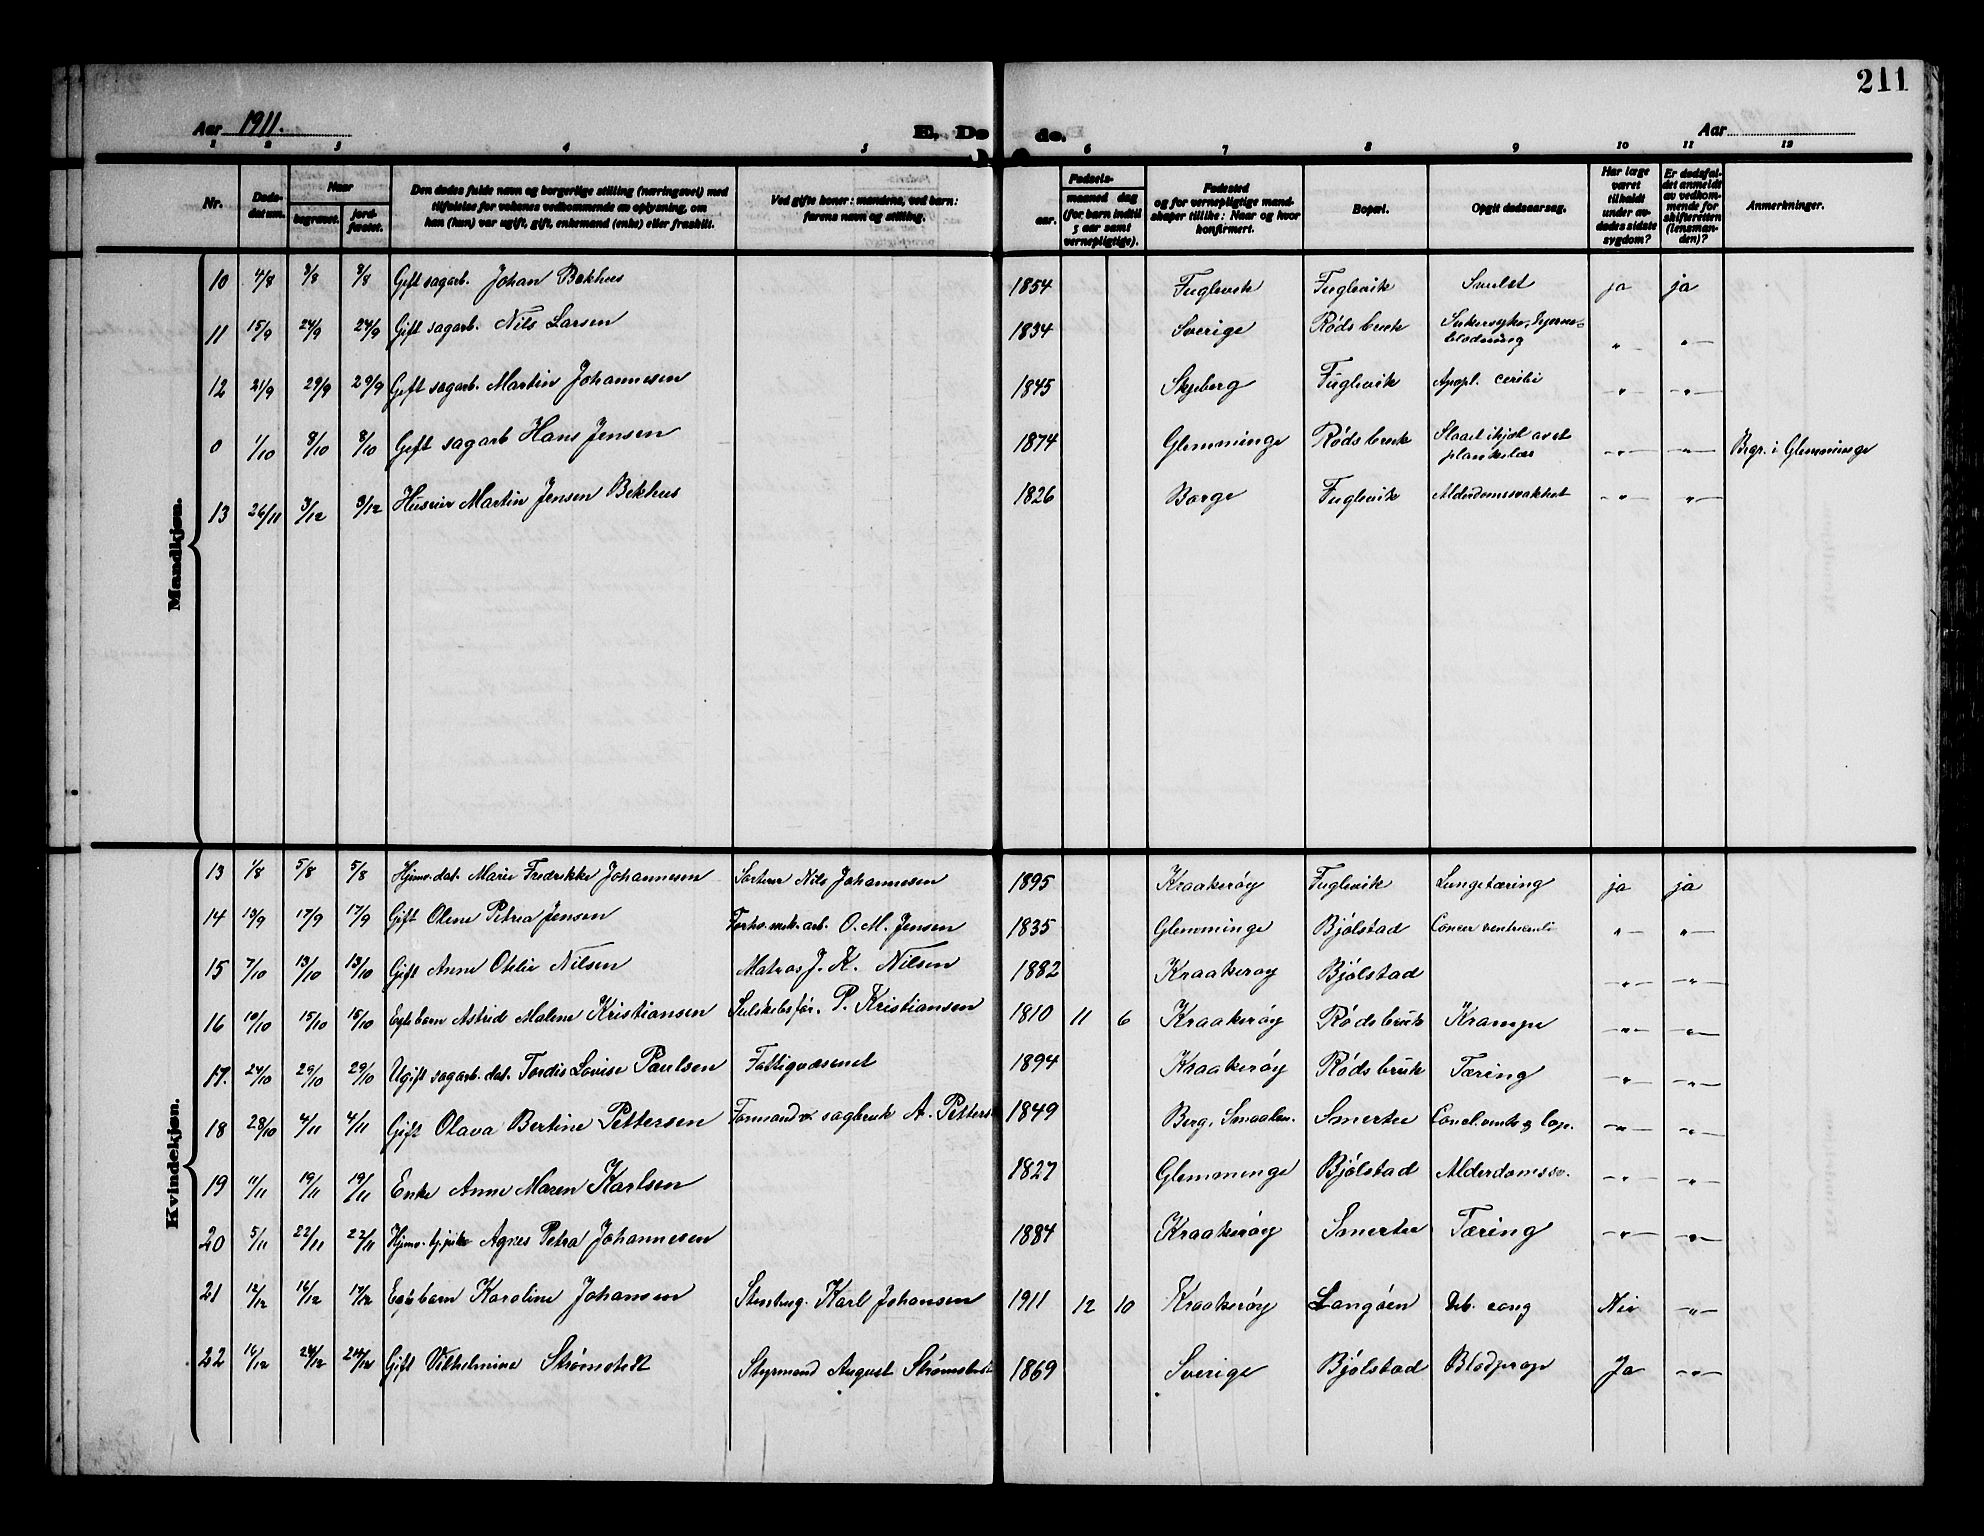 211
Aar 1911.
E. Dø
de.
Aar
1 2 3 4 5 6 7 8 9 10 11 12
Nr.
Døds-
datum.
Naar
begravet.
jord-
fæstet.
Den dødes fulde navn og borgerlige stilling (næringsvei) med
tilføielse for voksnes vedkommende av oplysning, om
han (hun) var ugift, gift, enkemand (enke) eller fraskilt.
Ved gifte koner: mandens, ved barn:
farens navn og stilling.
Fødsels-
aar.
maaned dag
(for barn indtil
5 aar samt
vernepligtige).
Fødested
og for vernepligtige mand-
skaper tillike: Naar og hvor
konfirmert.
Bopæl.
Opgit dødsaarsag.
Har læge
været
tilkaldt
under av-
dødes sidste
sygdom?
Er dødsfal-
det anmeldt
av vedkom-
mende for
skifteretten
(lensman-
den)?
Anmerkninger.
Mandkjøn.
10 4/8 8/8 8/8 Gift sagarb. Johan Bekhus 1854 Fuglevik Fuglevik Svulst ja ja
11 15/9 24/9 24/9 Gift sagarb. Nils Larsen 1834 Sverige Røds bruk Sukersyke, hjerne-
blødning -"- -"-
12 21/9 29/9 29/9 Gift sagarb. Martin Johannesen 1845 Skjeberg Fuglevik Apopl. cerebi -"- -"-
0 1/10 8/10 8/10 Gift sagarb Hans Jensen 1874 Glemminge Røds bruk Slaaet ihjel av et
plankelæs -"- -"- Begr. i Glemminge
13 26/11 3/12 3/12 Huseier Martin Jensen Bekhus 1826 Borge Fuglevik Alderdomssvakhet -"- -"-
Kvindekjøn.
13 1/8 5/8 5/8 Hjemv. dat. Marie Fredrikke Johannesen Sorterer Nils Johannesen 1895 Kraakerøy Fuglevik Lungetæring ja ja
14 13/9 17/9 17/9 Gift Oline Petrea Jensen Forhv. mek. arb. O. M. Jensen 1835 Glemminge Bjølstad Cancer ventriculi -"- -"-
15 7/10 13/10 13/10 Gift Anne Otilie Nilsen Matros J. K. Nilsen 1882 Kraakerøy Bjølstad -"- -"-
16 10/10 15/10 15/10 Egtebarn Astrid Malene Kristiansen Selskebsfør. P. Kristiansen 1810 11 6 Kraakerøy Røds bruk Krampe -"- -"-
17. 24/10 29/10 29/10 Ugift sagarb. dat. Tordis Lovise Paulsen Fattigvæsenet 1894 Kraakerøy Røds bruk Tæring -"- -"-
18 28/10 4/11 4/11 Gift Olava Bertine Pettersen Formand v. sagbruk A. Petters 1849 Berg, Smaalen. Smertu -"- -"-
19 11/11 19/11 19/11 Enke Anne Maren Karlsen 1827 Glemminge Bjølstad Alderdomssv. -"- -"-
20 5/11 22/11 22/11 Agnes Petra Johannesen 1884 Kraakerøy Smertu Tæring -"- -"-
21 12/12 16/12 17/12 Egtebarn Karoline Johansen Stenhug. Karl Johansen 1911 12 10 Kraakerøy Langøen Deb. cong Nei -"-
22 16/12 24/12 24/12 Gift Vilhelmine Strømstedt Styrmand August Strømstedt 1869 Sverige Bjølstad Blodprop Ja -"-